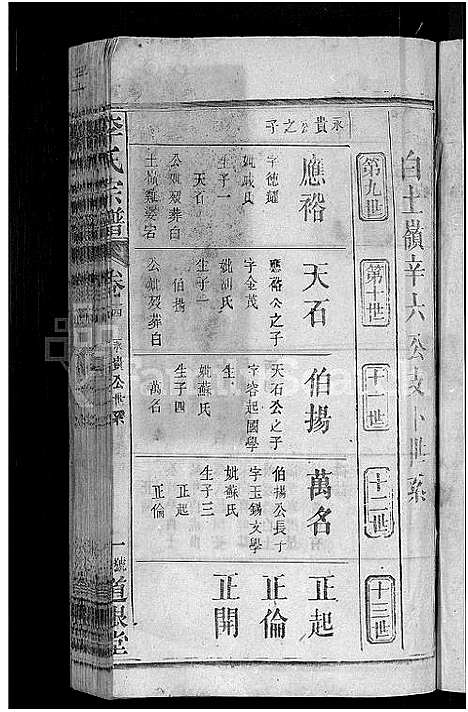 白土嶺辛六公
第九世
第十世
十一世
十二世
十三世
永貴公之子
應裕
字德耀
妣戚氏
生子一
天石
公妣葬白
土嶺
天石
應裕公之子
字金茂
妣氏
生子一
伯揚
公妣葬白
伯揚
天石公之子
字容起國學
生
妣蘇氏
生子四
萬名
萬名
伯揚公長子
字玉錫文學
妣蘇氏
生子三
正起
正倫
正起
正倫
正開
李氏宗譜
卷
四
永貴公世系
一號
道根堂